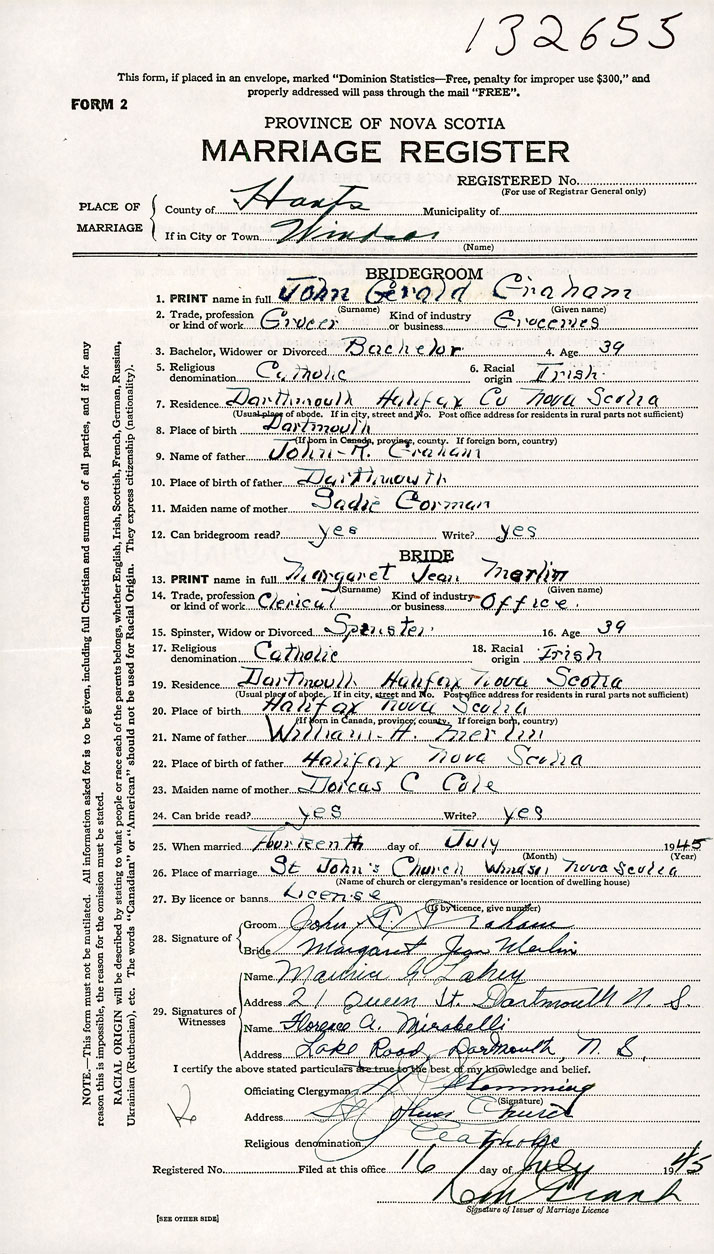 132655
This form, if placed in an envelope, marked "Dominion Statistics—Free, penalty for improper use $300," and
properly addressed will pass through the mail "FREE".
FORM 2
PROVINCE OF NOVA SCOTIA
MARRIAGE REGISTER
REGISTERED No.
(For use of Registrar General only)
PLACE OF MARRIAGE
County of Hants Municipality of
If in City or Town Windsor
(Name)
BRIDEGROOM
1. PRINT name in full John Gerald Graham
(Surname) (Given name)
2. Trade, profession or kind of work Grocer Kind of industry or business Groceries
3. Bachelor, Widower or Divorced Bachelor 4. Age 39
5. Religious denomination Catholic 6. Racial origin Irish
7. Residence Dartmouth Halifax Co Nova Scotia
(Usual place of abode. If in city, street and No. Post office address for residents in rural parts not sufficient)
8. Place of birth Dartmouth
(If born in Canada, province, county. If foreign born, country)
9. Name of father John Graham
10. Place of birth of father Dartmouth
11. Maiden name of mother Sadie Gorman
12. Can bridegroom read? yes Write? yes
BRIDE
13. PRINT name in full Margaret Jean Merlin
(Surname) (Given name)
14. Trade, profession or kind of work Clerical Kind of industry or business Office.
15. Spinster, Widow or Divorced Spinster 16. Age 39
17. Religious denomination Catholic 18. Racial origin Irish
19. Residence Dartmouth Halifax Nova Scotia
(Usual place of abode. If in city, street and No. Post office address for residents in rural parts not sufficient)
20. Place of birth Halifax Nova Scotia
(If born in Canada, province, county. If foreign born, country)
21. Name of father William H. Merlin
22. Place of birth of father Halifax Nova Scotia
23. Maiden name of mother Dorcas C Cole
24. Can bride read? yes Write? yes
25. When married day of July 1945
(Month) (Year)
26. Place of marriage St John's Church Windsor Nova Scotia
(Name of church or clergyman's residence or location of dwelling house)
27. By licence or banns License
(If by licence, give number)
28. Signature of
Groom John G. Graham
Bride Margaret Jean Merlin
29. Signatures of Witnesses
Name Maurice G Lahey
Address 21 Queen St. Dartmouth N. S.
Name Florence A. Mirabelli
Address Lake Road, Dartmouth, N. S.
I certify the above stated particulars are true to the best of my knowledge and belief.
Officiating Clergyman
(Signature)
Address St Church
Religious denomination Catholic
Registered No. Filed at this office 16 day of July 1945
Signature of Issuer of Marriage Licence
[SEE OTHER SIDE]
NOTE.—This form must not be mutilated. All information asked for is to be given, including full Christian and surnames of all parties, and if for any
reason this is impossible, the reason for the omission must be stated.
RACIAL ORIGIN will be described by stating to what people or race each of the parents belongs, whether English, Irish, Scottish, French, German, Russian,
Ukrainian (Ruthenian), etc. The words "Canadian" or "American" should not be used for Racial Origin. They express citizenship (nationality).